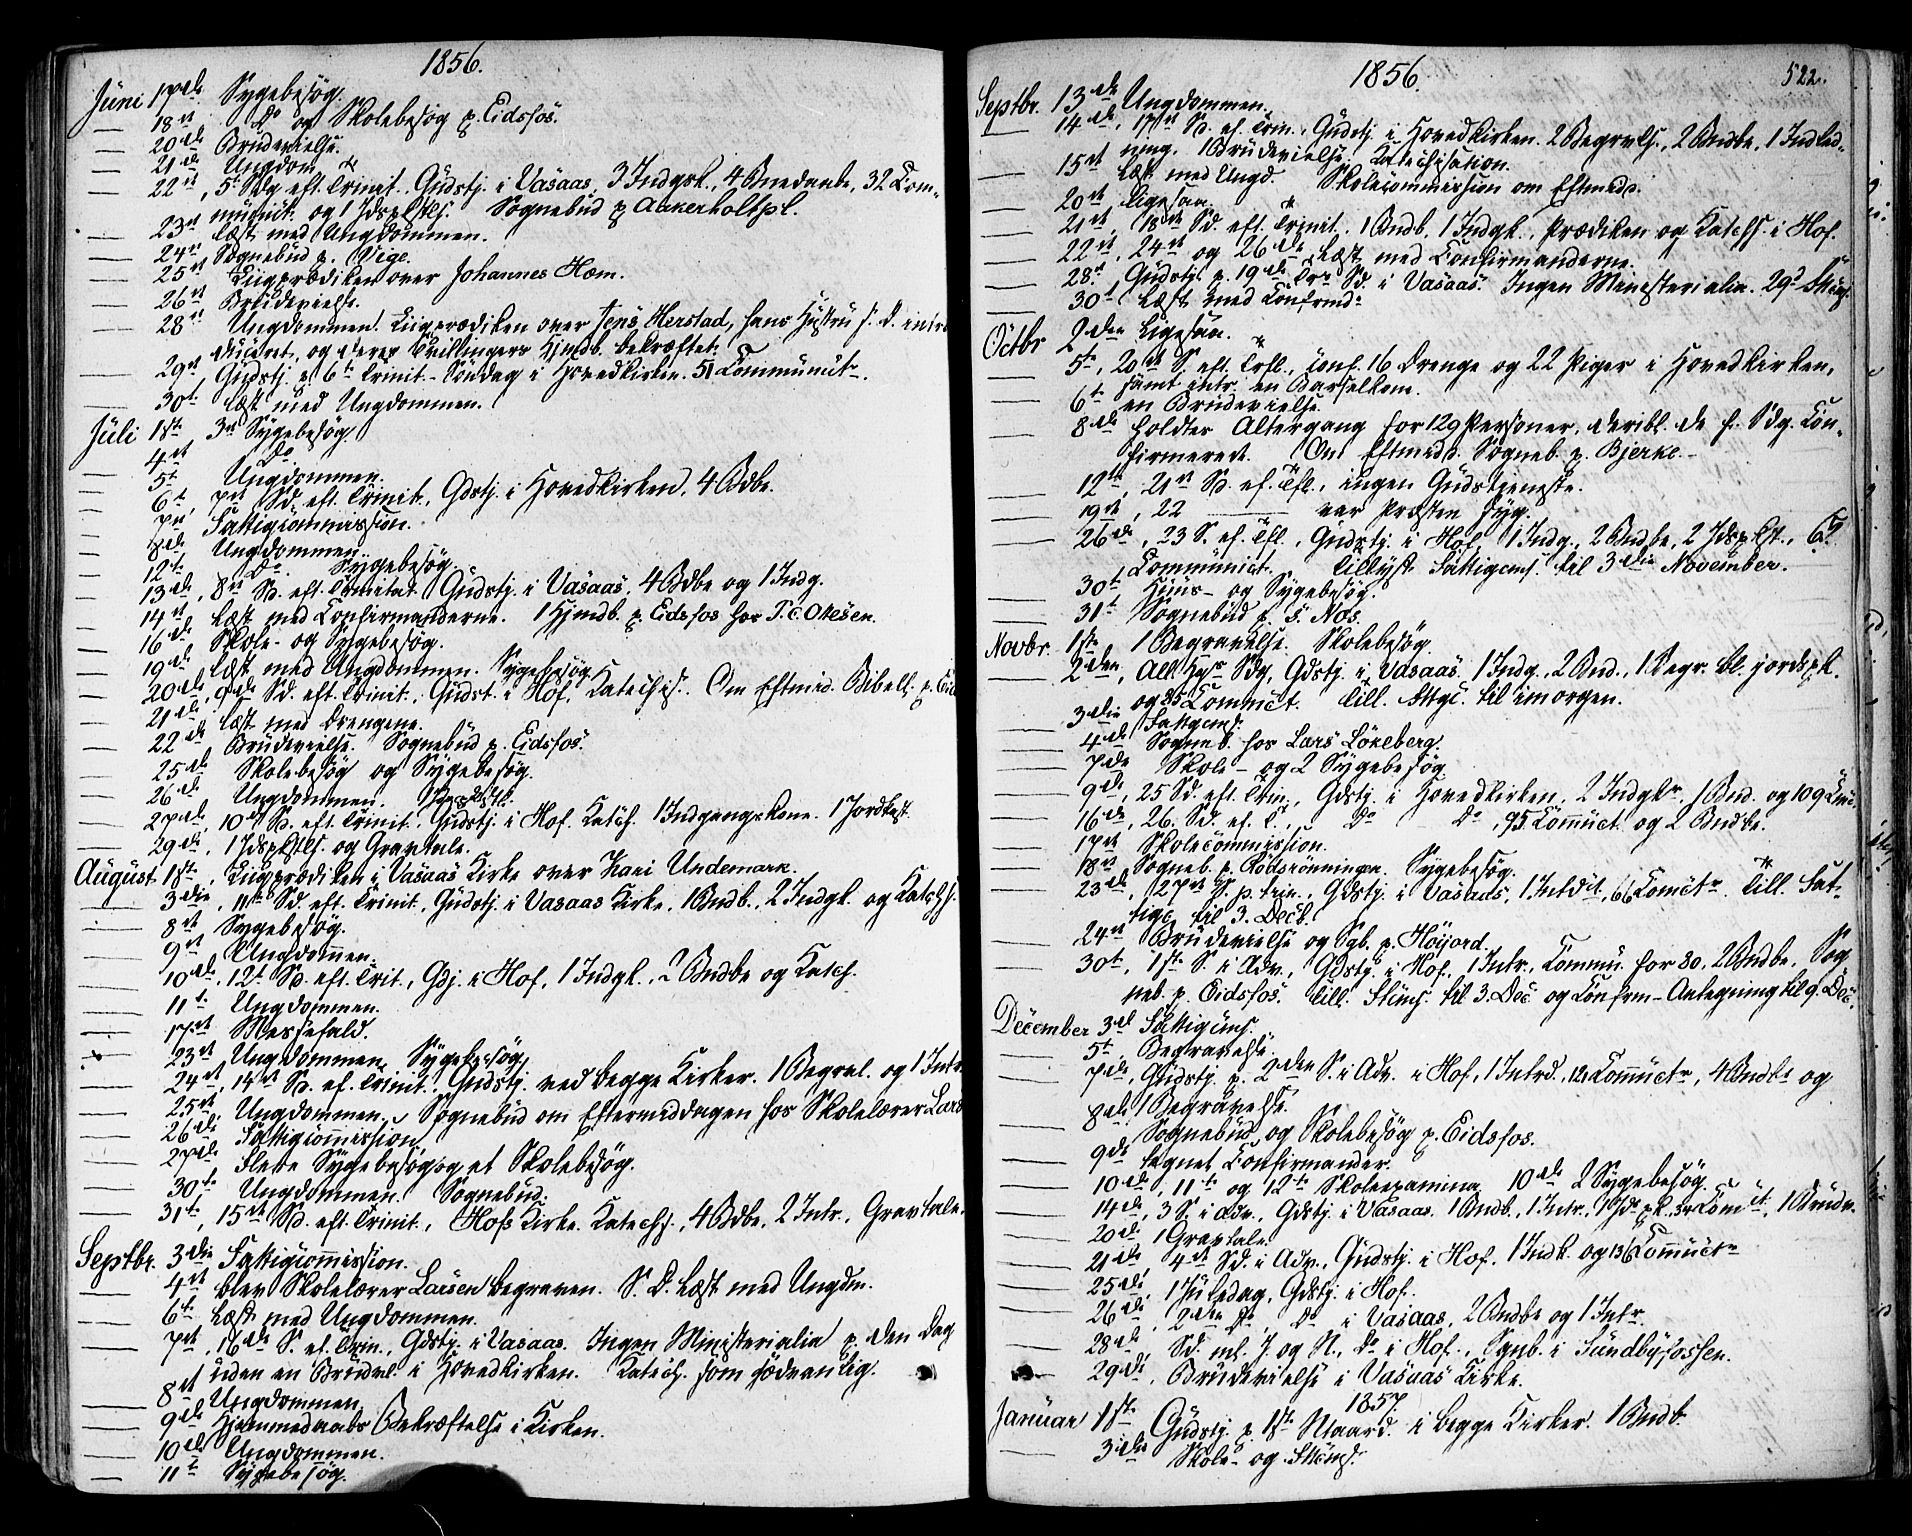 1856.
Juni 17de Sygebesøg.
— 18de Do og Skolebesøg p. Eidsfos.
— 20de Brudevielse.
— 21de Ungdom
— 22de, 5te Sdg eft. Trinit. Gudstj. i Vasaas, 3 Indgsk., 4 Bnedaabe, 32 Com-
munict. og 1 Jdspkstls. Sognebud p. Aakerholtpl.
— 23de Læst med Ungdommen.
— 24de Sognebud p. Vige.
— 25de Liigprædiken over Johannes Hæm.
— 26de Brudevielse.
— 28de Ungdommen. Liigprædiken over Jens Herstad, hans Hustru s. D. intro
duceret, og deres Tvillingers Hjmdb. bekræftet.
— 29de Gudstj. p. 6te Trinit.-Søndag i Hovedkirken. 51 Communictr.
— 30te Læst med Ungdommen.
Juli 1ste 3de Sygebesøg
— 4de Do.
— 5te Ungdommen.
— 6te, 7de Sd. eft. Trinit., Gdstj. i Hovedkirken, 4 Bdbe.
— 7de Fattigcommission.
— 8de Ungdommen.
— 12te Do. Sygebesøg.
— 13de, 8de Sd. eft. Trinitat. Gudstj. i Vasaas, 4 Bdbe og 1 Indg.
— 14de Læst med Confirmanderne. 1 Hjmdb. p. Eidsfos hos T. C. Olesen.
— 16de Skole- og Sygebesøg.
— 19de Læst med Ungdommen. Sygebesøg
— 20de, 9de Sd. eft. Trinit. Gudst. i Hof. Katechis. Om Eftmid. Bibell. p. Eid
— 21de Læst med Drengene.
— 22de Brudevielse. Sognebud p. Eidsfos.
— 25de Skolebesøg og Sygebesøg.
— 26de Ungdommen.
— 27de, 10de Sd. eft. Trinit., Gudstj. i Hof. Katch. 1 Indgangskone. 1 Jordkast
— 29de, 1 Jdspkstls. og Gravtale.
August 1ste, Liigprædiken i Vasaas Kirke over Kari Undemark.
— 3die, 11te Sd. eft. Trinit., Gudstj. i Vasaas Kirke, 1 Bndb., 2 Indgk. og Katchs.
— 8de Sygebesøg.
— 9de Ungdommen.
— 10de, 12te Sd. eft. Trit., Gdj. i Hof, 1 Indgk., 2 Bndbe og Katch.
— 11te Ungdommen.
— 17de Messefald.
— 23de Ungdommen. Sygebesøg
— 24de, 14de Sd. ef. Trinit. Gudstj. ved begge Kirker. 1 Begrvl. og 1 Intr.
— 25de Ungdommen. Sognebud om Eftermiddagen hos Skolelærer Lars
— 26de Fattigcommission
— 27de Flere Sygebesøg og et Skolebesøg.
— 30te Ungdommen. Sognebud.
— 31te, 15de Sd. eft. Trinit., Hofs Kirke. Katechs., 4 Bdbe. 2 Intr., Gravtale.
Septbr. 3die Fattigcommission.
— 4de blev Skolelærer Larsen begraven. S. D. Læst med Ungdm.
— 6te Læst med Ungdommen.
— 7de, 16de S. ef. Trin., Gdstj. i Vasaas. Ingen Ministerialia p. den Dag
uden en Brudvl. i Hovedkirken. Katech. som sædvanlig.
— 8de Ungdommen.
— 9de Hjemmedaabs Bekræftelse i Kirken.
— 10de Ungdommen.
— 11te Sygebesøg.
1856. 522.
Septbr. 13de Ungdommen.
— 14de, 17de Sd. ef. Trin., Gudstj. i Hovedkirken. 2 Begrvls., 2 Bndbe, 1 Indled-
ning. 1 Brudevielse. Katechisation.
— 15de Læst med Ungd. Skolecommission om Eftmidd.
— 20de Ligesaa.
— 21de, 18de Sd. eft. Trinit., 1 Bndb. 1 Indgk., Prædiken og Katchs. i Hof.
— 22de, 24de og 26de Læst med Confirmanderne.
— 28de Gudstj. p. 19de Trn Sd. i Vasaas. Ingen Ministerialia. 29de
— 30te Læst med Confrmde
Octbr 2den Ligesaa.
— 5te, 20de S. eft. Trfl., conf. 16 Drenge og 22 Piger i Hovedkirken,
samt intr. en Barselkone.
— 6te en Brudevielse.
— 8de holdtes Altergang for 129 Personer, deribl. de f. Sdg. Con-
firmerede. Om Eftmidd. Sogneb. p. Bjerke.
— 12te, 21de Sd. ef. Tfl., ingen Gudstjeneste.
— 19de, 22 — var Præsten syg.
— 26de, 23 S. ef. Tfl., Gudstj. i Hof, 1 Indg., 2 Bndbe, 2 Jdspkst., 67
Communict. Tillyst Fattigcms. til 3die November.
— 30te Huus- og Sygebesøg.
— 31te Sognebud p. S. Næs.
Novbr. 1ste 1 Begravelse. Skolebesøg.
— 2den, All. Hgn Sdg, Gdstj. i Vasaas. 1 Indg., 2 Bnd., 1 Begr. bl. jordspk.
og 35 Commct. Till. Fttgc. til imorgen.
— 3die Fattgcms.
— 4de Sogneb. hos Lars Lökeberg.
— 7de Skole- og 2 Sygebesøg
— 9de, 25 Sd. eft. Trin., Gdstj. i Hovedkirken, 2 Indgkr, 1 Bnd. og 109 Com
— 16de, 26. Sd. ef. T., Do Do, 95 Commct. og 2 Bndbe.
— 17de Skolecommission.
— 18de Sogneb. p. Rødsrønningen. Sygebesøg.
— 23de, 27de S. p. Trin., Gdstj. i Vasaas, 1 Intdct, 66 Commctr. Till. Fat-
tigc. til 3. Decb.
— 24de Brudevielse og Sgb. p. Höijord.
— 30te, 1ste S. i Adv., Gdstj. i Hof, 1 Intr., Commu. for 80, 2 Bndbe. Sog
neb. p. Eidsfos. Till. Fttcms. til 3. Dec og Confrm-Antegning til 9. Dec.
December 3die Fattigcms.
— 5te Begravelse.
— 7de, Gudstj. p. 2den S. i Adv. i Hof, 1 Intrd., 121 Commctr, 4 Bndbe og
1 Begravelse.
— 8de Sognebud og Skolebesøg p. Eidsfos.
— 9de tegnet Confirmander.
— 10de, 11te og 12te Skoleexamina. 10de 2 Sygebesøg.
— 14de, 3 S. i Adv., Gdstj. i Vasaas. 1 Bndb., 1 Intr., 1 Jdspk., 34 Commct., 1 Brudv.
— 20de 1 Gravtale.
— 21de, 4de Sd. i Adv., Gudstj. i Hof. 1 Indk. og 136 Commctr
— 25de, 1 Juledag, Gdstj. i Hof.
— 26de, 2den Do, Do i Vasaas, 2 Bndbe og 1 Intr.
— 28de, Sd. ml. J. og N., Do i Hof., Sgnb. i Sundbyfossen.
— 29de, Brudevielse i Vasaas Kirke.
1857.
Januar 1ste Gudstj. p. 1ste Nyaard. i begge Kirker. 1 Bndb.
— 3die Skole- og Fttcms.